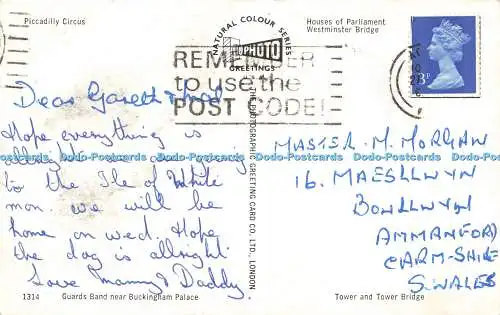 Piccadilly Circus
Houses of Parliament
Westminster Bridge
NATURAL COLOUR SERIES
PHOTO
GREETINGS
REMEMBER
to use the
POST CODE!
Dear Gareth &
Hope everything is
allright. we are going
to the Ile of White
mon. we will be
home on wed. Hope
the dog is allright
Love Mammy & Daddy.
THE PHOTOGRAPHIC GREETING CARD CO. LTD., LONDON
MASTER. M. MORGAN
16. MAESLLWYN
BONLLWYN
AMMANFORD
CARM-SHIRE
S. WALES
1314
Guards Band near Buckingham Palace
Tower and Tower Bridge
Dodo-Postcards Dodo-Postcards Dodo-Postcards Dodo-Postcards Dodo-Postcards Dodo-Postcards